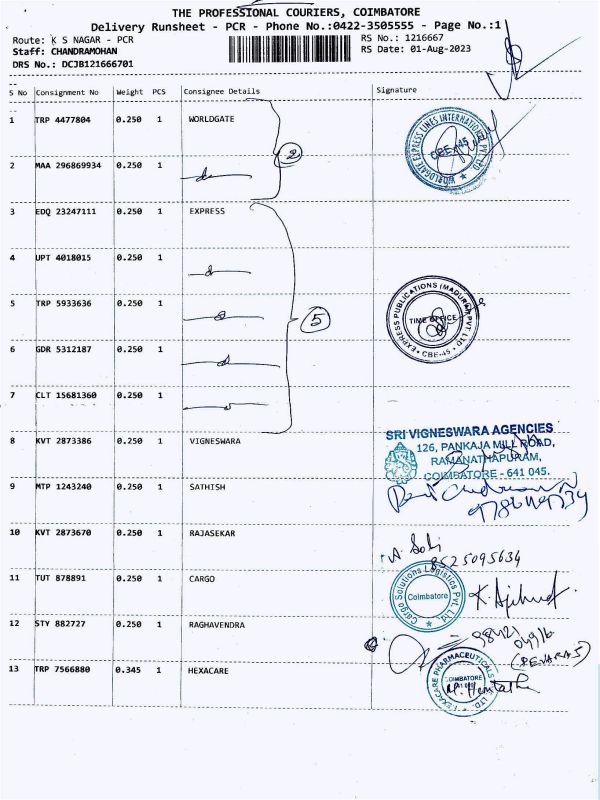 THE PROFESSIONAL COURIERS, COIMBATORE
Delivery Runsheet - PCR - Phone No.:0422-3505555 - Page No.:1
Route: K S NAGAR - PCR
RS No.: 1216667
Staff: CHANDRAMOHAN
RS Date: 01-Aug-2023
DRS No.: DCJB121666701
S No Consignment No Weight PCS Consignee Details Signature
1 TRP 4477804 0.250 1 WORLDGATE
WORLDGATE EXPRESS LINES INTERNATIONAL PVT. LTD. CBE-45
2 MAA 296869934 0.250 1
2
3 EDQ 23247111 0.250 1 EXPRESS
4 UPT 4018015 0.250 1
5 TRP 5933636 0.250 1
5
EXPRESS PUBLICATIONS (MADURAI) PVT LTD TIME OFFICE CBE-45
6 GDR 5312187 0.250 1
7 CLT 15681360 0.250 1
8 KVT 2873386 0.250 1 VIGNESWARA
SRI VIGNESWARA AGENCIES
126, PANKAJA MILL ROAD,
RAMANATHAPURAM,
COIMBATORE - 641 045.
9 MTP 1243240 0.250 1 SATHISH
10 KVT 2873670 0.250 1 RAJASEKAR
8525095634
11 TUT 878891 0.250 1 CARGO
Cargo Solutions Logistics Pvt. Ltd. Coimbatore
12 STY 882727 0.250 1 RAGHAVENDRA
13 TRP 7566880 0.345 1 HEXACARE
HEXACARE PHARMACEUTICALS COIMBATORE